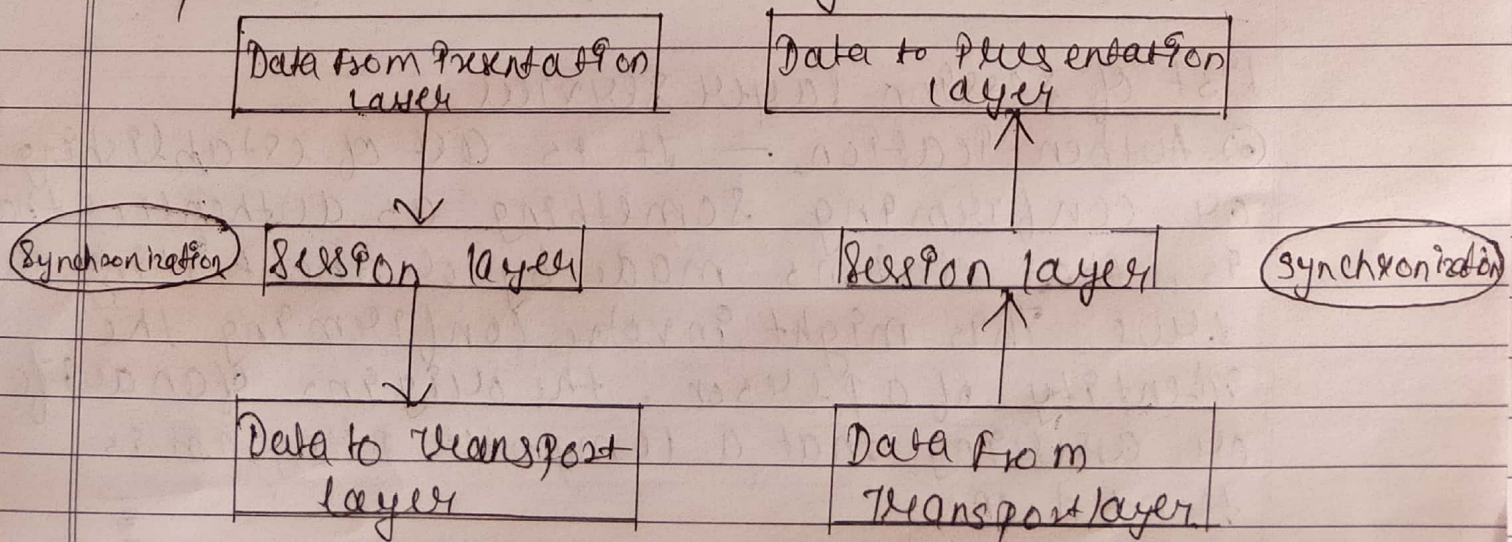 Data from Presentation
Layer
Data to Presentation
layer
Synchronization
Session layer
Session layer
Synchronization
Data to transport
layer
Data From
Transport layer